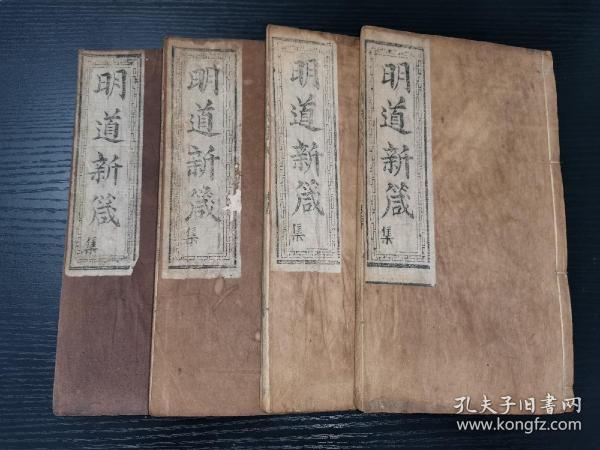 明道新箴
集
明道新箴
集
明道新箴
集
明道新箴
集
孔夫子旧书网
www.kongfz.com